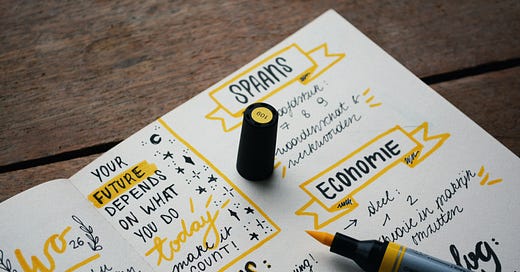 Wo 26
YOUR
FUTURE
DEPENDS
ON WHAT
YOU DO
today
make it
COUNT!
SPAANS
hoofdstuk:
7 8 9
woordenschat &
werkwoorden
109
ECONOMIE
→ deel:
1 2
in marktijk
omzetten